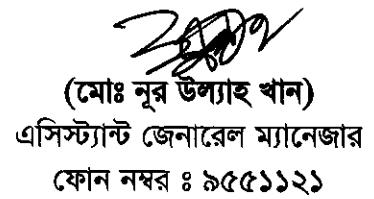 (মোঃ নূর উল্যাহ খান)
এসিস্ট্যান্ট জেনারেল ম্যানেজার
ফোন নম্বর ঃ ৯৫৫১১২১